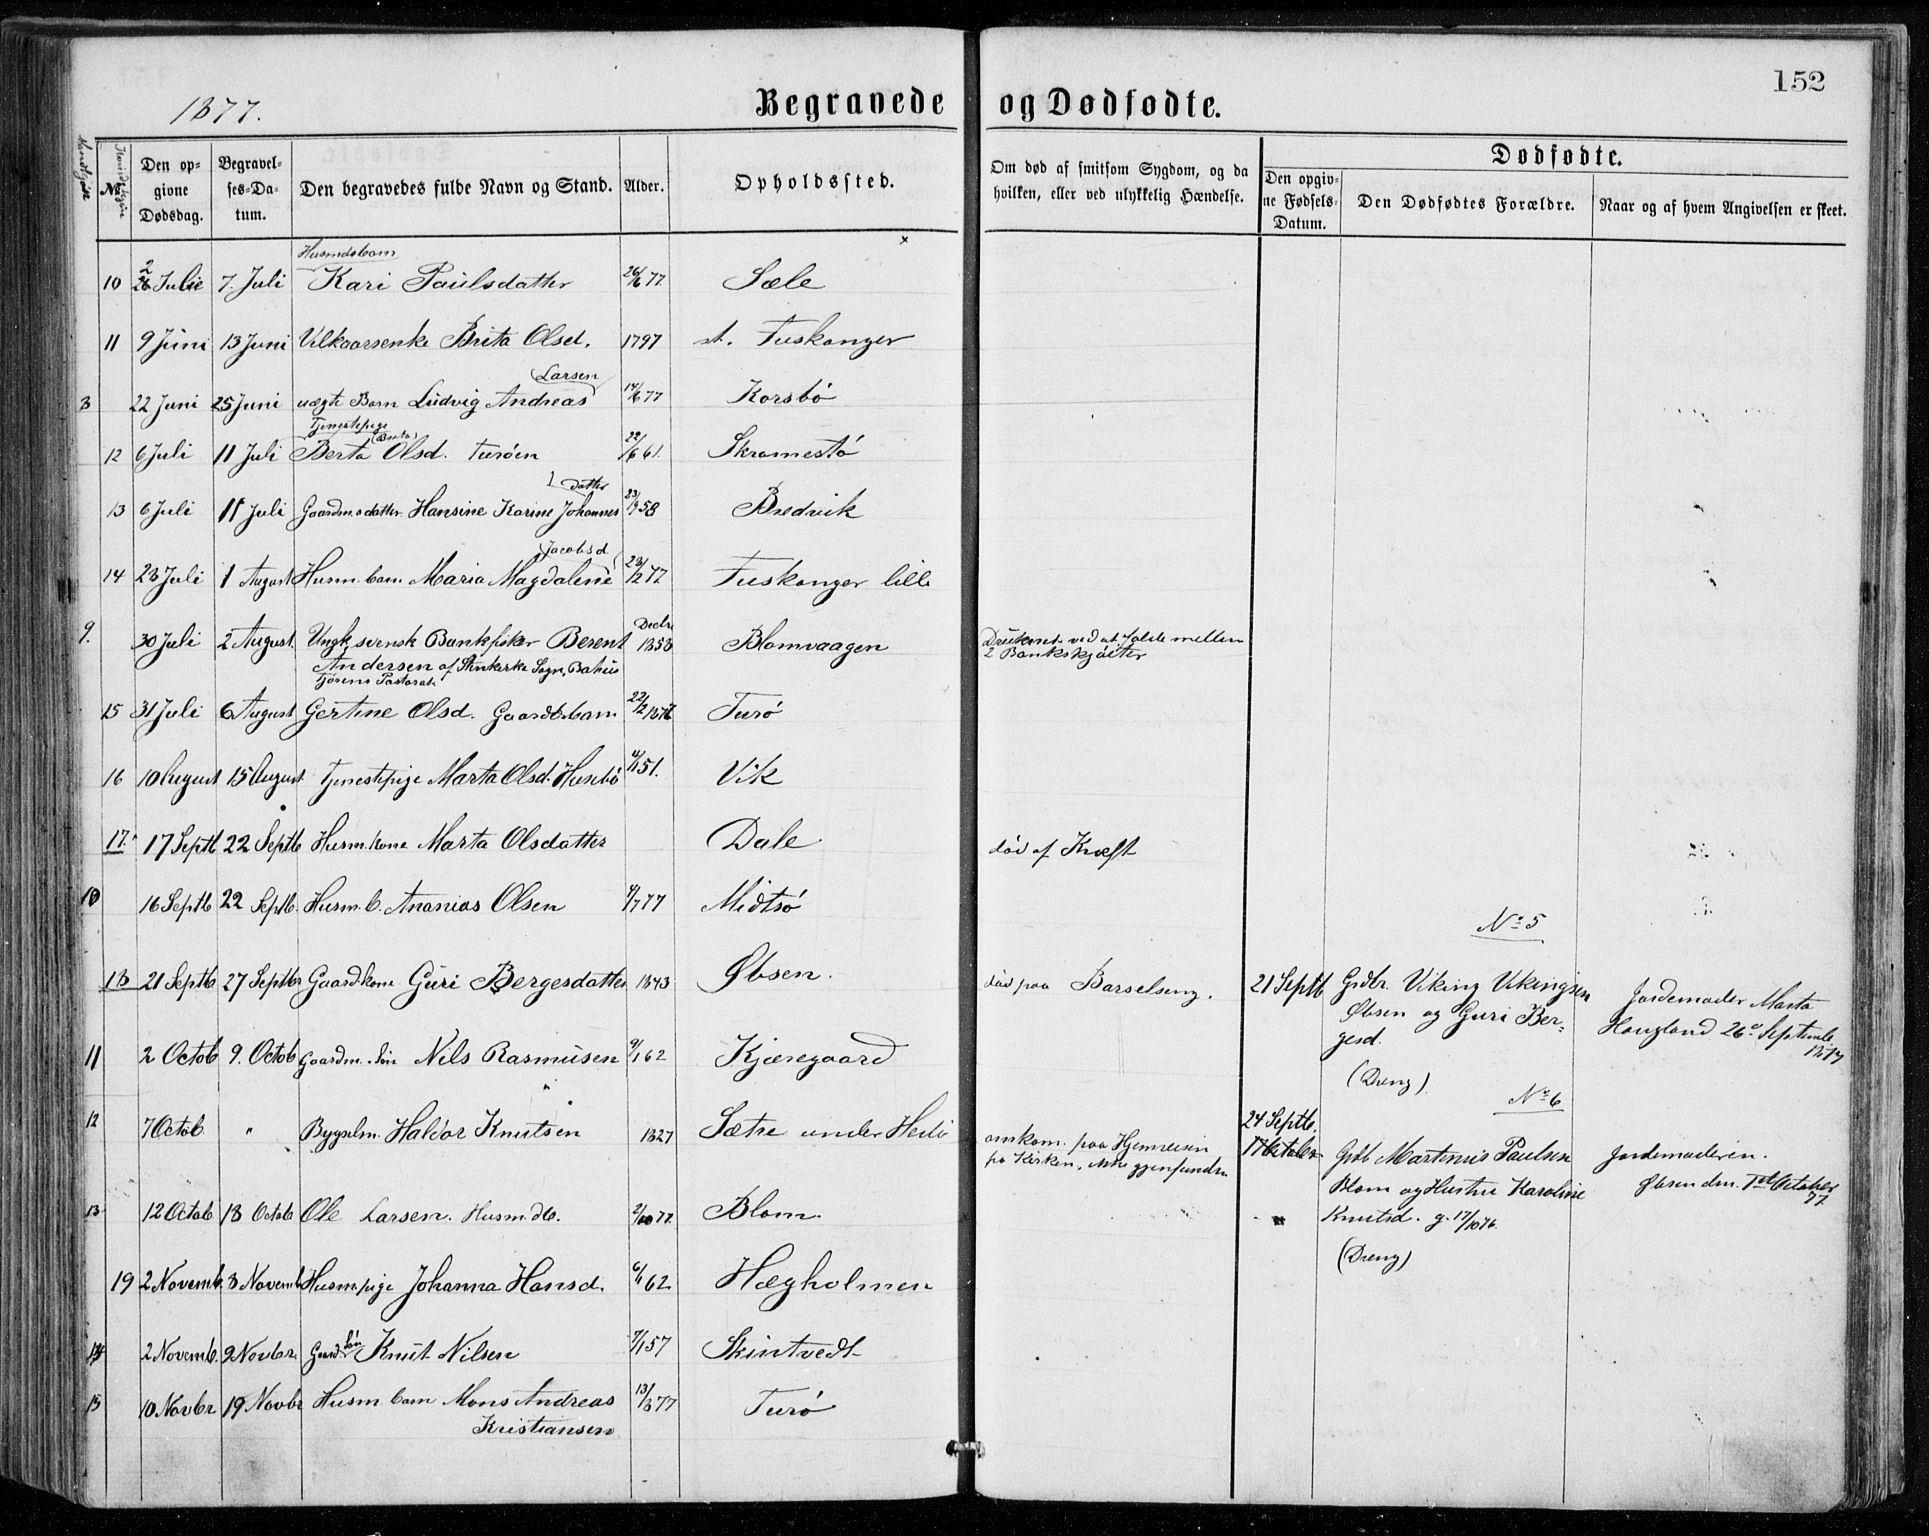 152
1877.
Begravede og Dødfødte.
Mandkjøn
No.
Den op-
givne
Dødsdag.
Begravel-
ses-Da-
tum.
Den begravedes fulde Navn og Stand.
Alder.
Opholdssted.
Om død af smitsom Sygdom, og da
hvilken, eller ved ulykkelig Hændelse.
Dødfødte.
Den opgiv-
ne Fødsels-
Datum.
Den Dødfødtes Forældre.
Naar og af hvem Angivelsen er skeet.
Husmdsbarn
10 2 Julie 7. Juli Kari Paulsdatter 26/6 77. Sæle
11 9 Juni 13 Juni Vilkaarsenke Brita Olsd. 1797 st. Fuskanger
Larsen
3 22 Juni 25 Juni uægte Barn Ludvig Andreas 14/6 77 Korsbø
Tjenestepige
(Brita)
12 6 Juli 11 Juli Berta Olsd. Turøen 22/6 61. Skramestø
datter
13 6 Juli 11 Juli Gaardm.sdatter Hansine Karine Johannes 23/9 58 Bredvik
Jacobsd
14 28 Juli 1 August Husm. barn Maria Magdalene 23/2 77 Fuskanger lille
9. 30 Juli 2 August. Ungk. svensk Bankfisker Berent Decbr 1853 Blomvaagen Druknet ved at falde mellem
Andersen af Stenkerke Sogn, Bahus 2 Bankskjøiter
Tjørens Pastorat
15 31 Juli 6 August Gertine Olsd. Gaardb.barn 22/2 1876 Turø
16 10 August 15 August Tjenestepige Marta Olsd. Husebø 4/1 51. Vik
17. 17 Septb 22 Septb Husm. kone Marta Olsdatter Dale død af Kræft
10 16 Septb 22 Septb. Husm. b. Ananias Olsen 4/7 77 Midtsø
No 5
18 21 Septb 27 Septbr Gaardkone Guri Bergesdatter 1843 Øbsen. død paa Barselseng. 21 Septb Grdbr. Viking Vikingsen Jordemoder Marta
Øbsen og Guri Ber- Haugland 26de Septembr
gesd. 1877
(Dreng)
11 2 Octob 9. Octob Gaardm. søn Nils Rasmusen 9/1 62 Kjæregaard
No 6
12 7 Octob " Bygselm. Haldor Knutsen 1827 Sætre under Herlø omkom. paa Hjemreisen
fra Kirken, ikke gjenfunden
24 Septb.
17 October Grdb Martinus Paulsen Jordemoderen.
Blom og Hustru Karoline Øbsen den 1ste October
Knutsd. g. 17/10 76. 77
(Dreng)
13 12 Octob 18 Octob Ole Larsen. Husm. db. 2/10 77. Blom.
19 2 Novemb. 8 Novemb Husm.pige Johanna Hansd. 6/1 62 Hægholmen
14 2 Novemb. 9 Novbr. Gaard Søn Knut Nilsen 7/1 57 Skintvedt
15 10 Novbr 19 Novbr Husm. barn Mons Andreas 13/3 77 Turø
Kristiansen